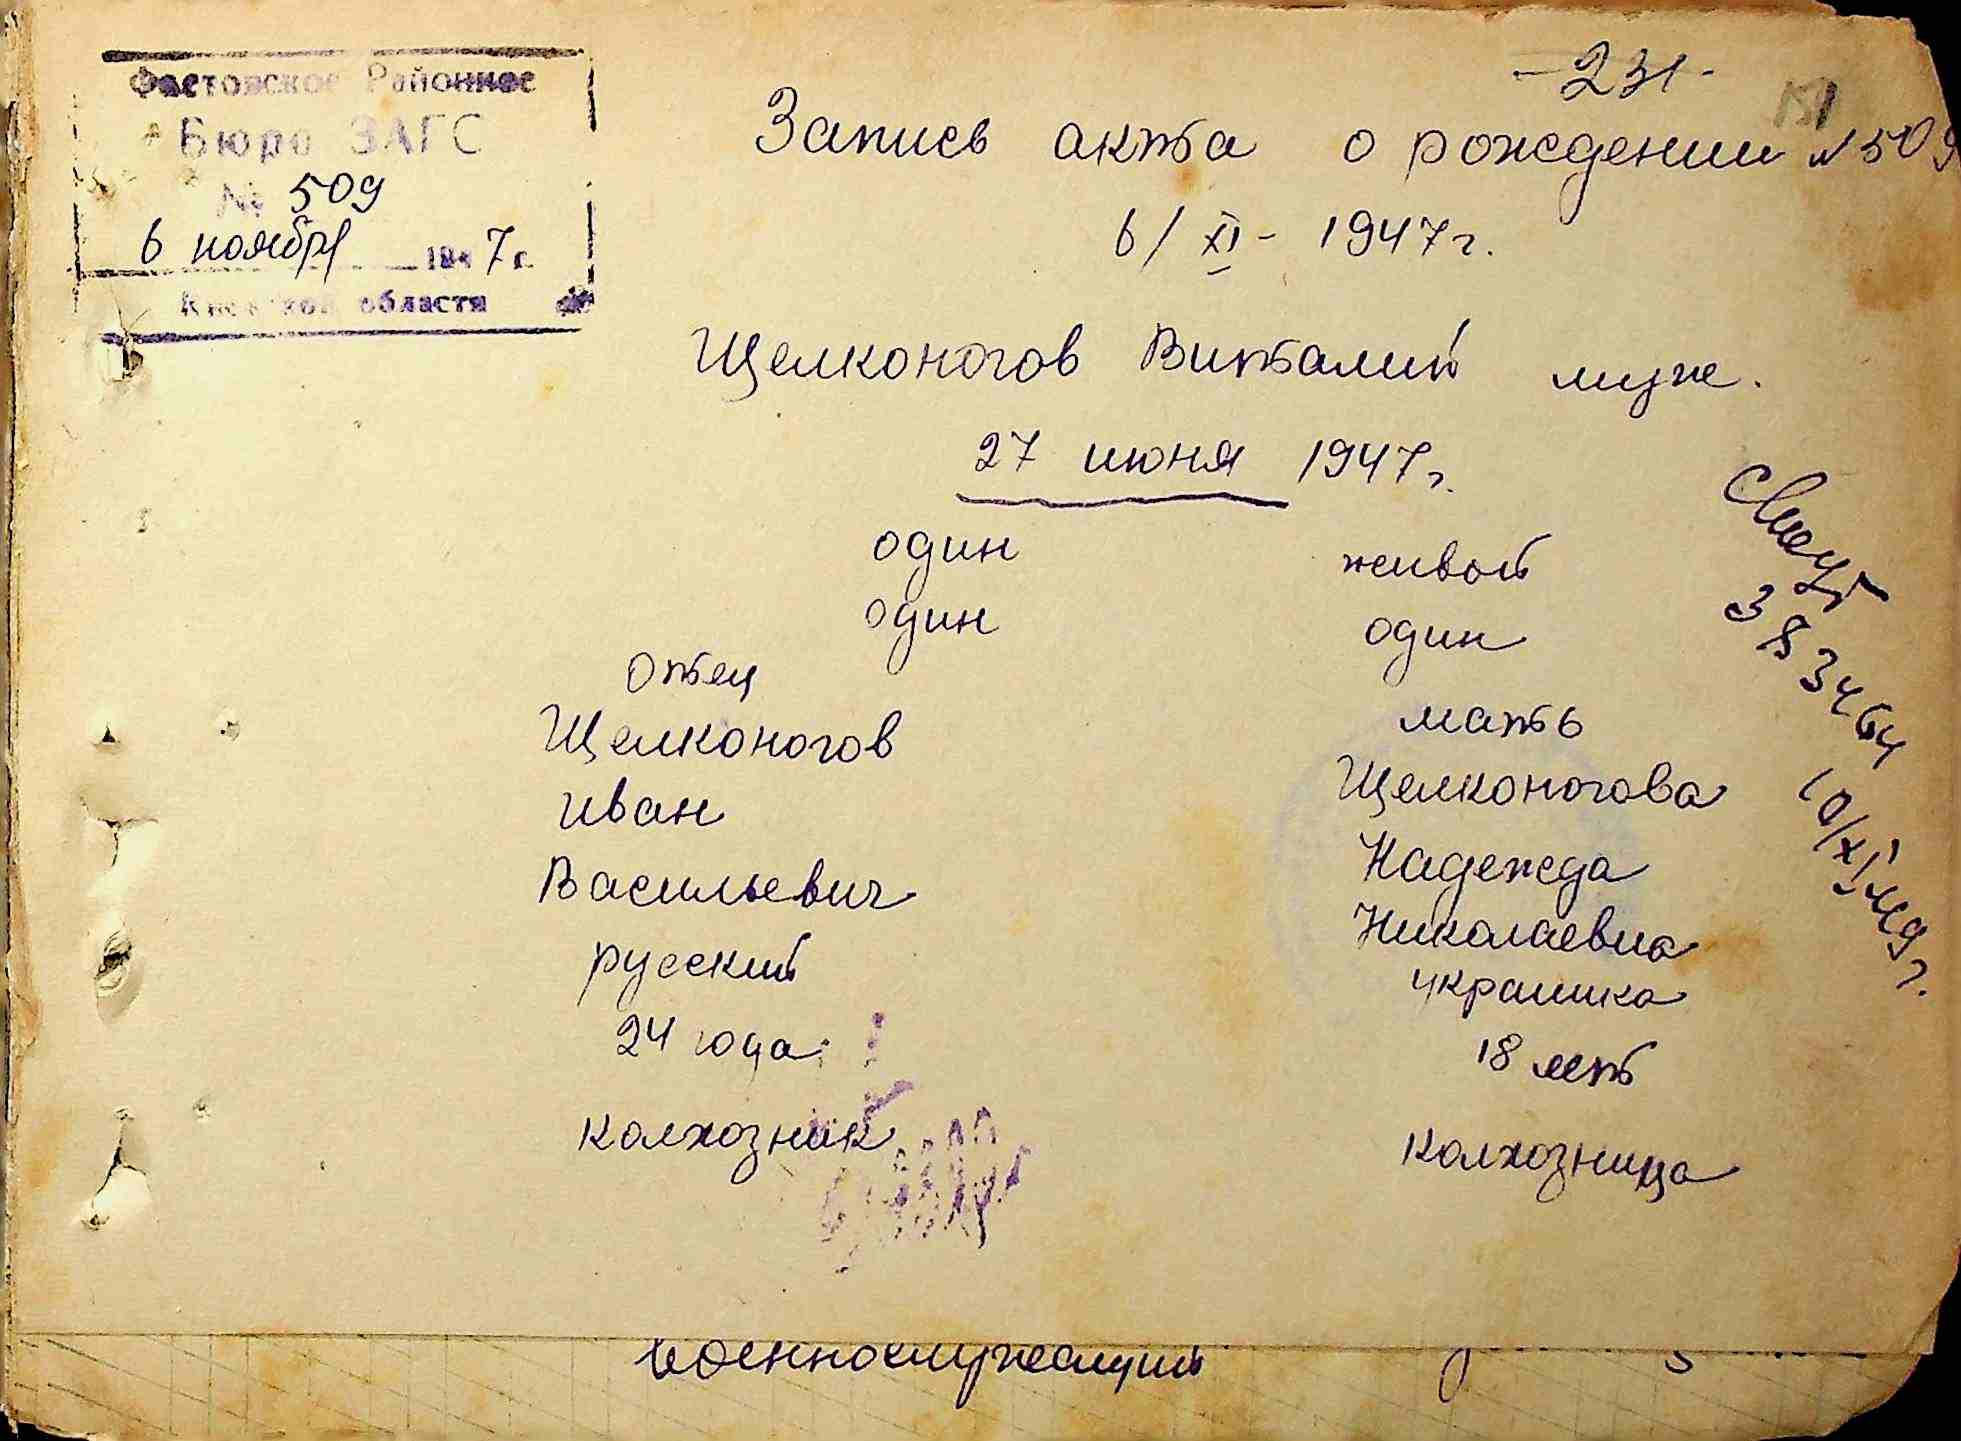 Фастовское Районное
Бюро ЗАГС
№ 509
6 ноября 1947 г.
Киевской области
-231-
Запись акта о рождении №509
6/XI- 1947г.
Щелконогов Виталий муж.
27 июня 1947г.
один живой
один один
Отец мать
Щелконогов Щелконогова
Иван Надежда
Васильевич Николаевна
русский украинка
24 года 18 лет
колхозник колхозница
военнослужащий